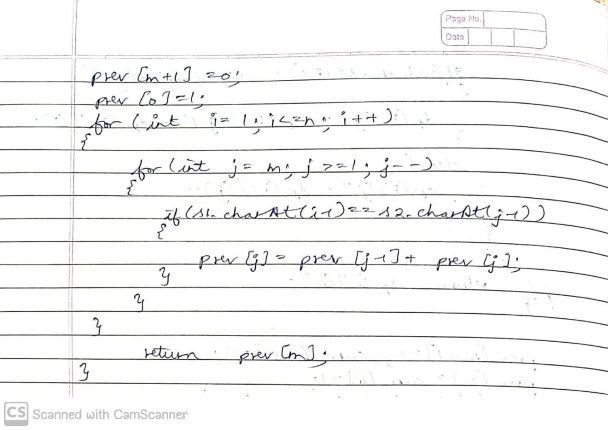 Page No.
Date
prev [m+1] = 0;
prev [0] = 1;
for (int i = 1; i <= n; i++)
{
for (int j = m; j >= 1; j--)
{
if (s1.charAt(i-1) == s2.charAt(j-1))
{
prev [j] = prev [j-1] + prev [j];
}
}
}
return prev [m];
}
CS Scanned with CamScanner